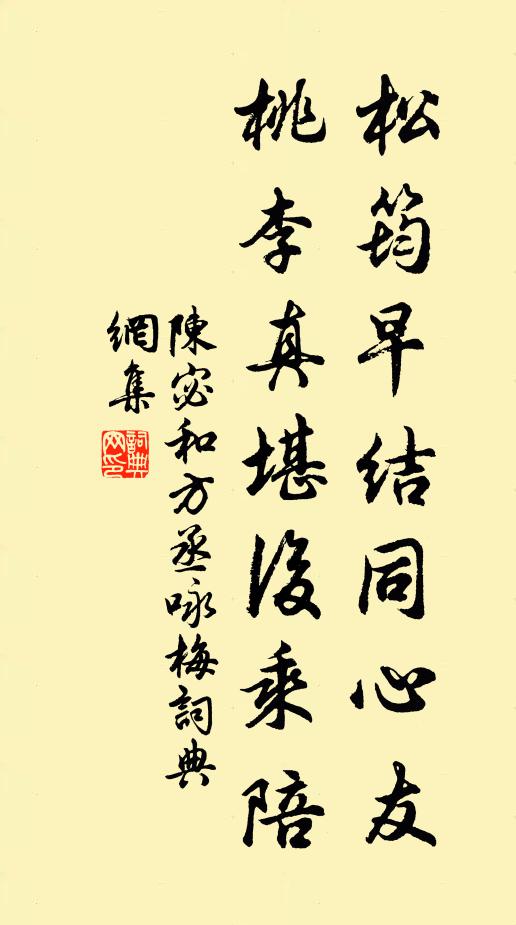 松筠早結同心友
桃李真堪後乘陪
陳宓和方丞咏梅詞典
網集
詞典网印